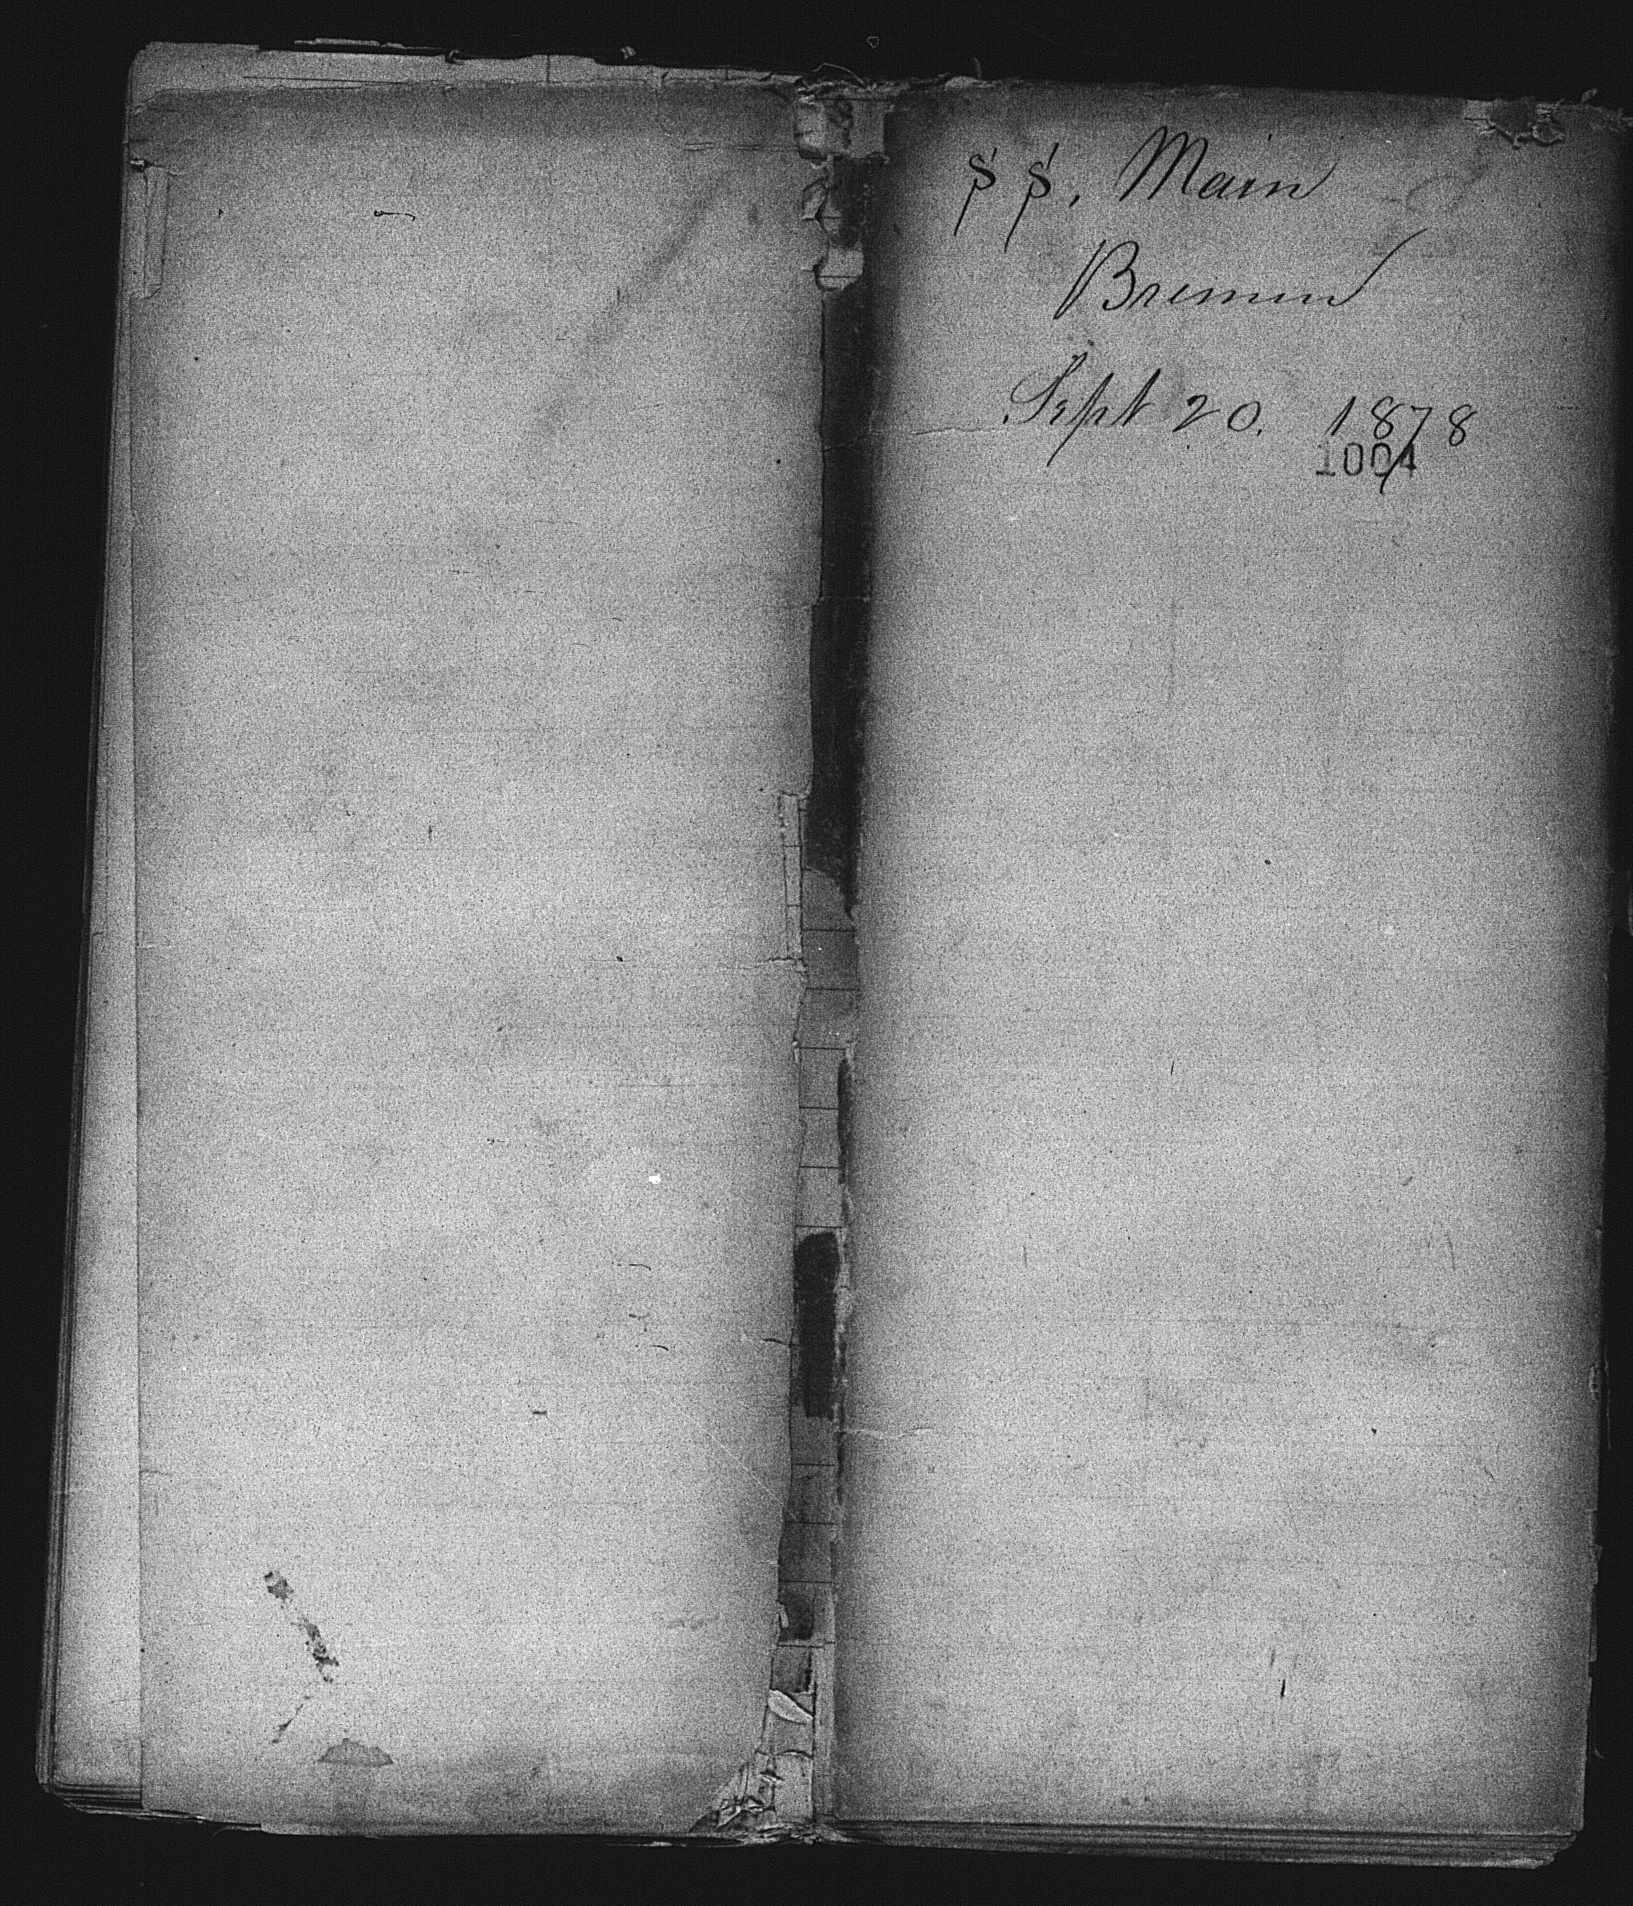 SS. Main
Bremen
Sept 20. 1878
1004